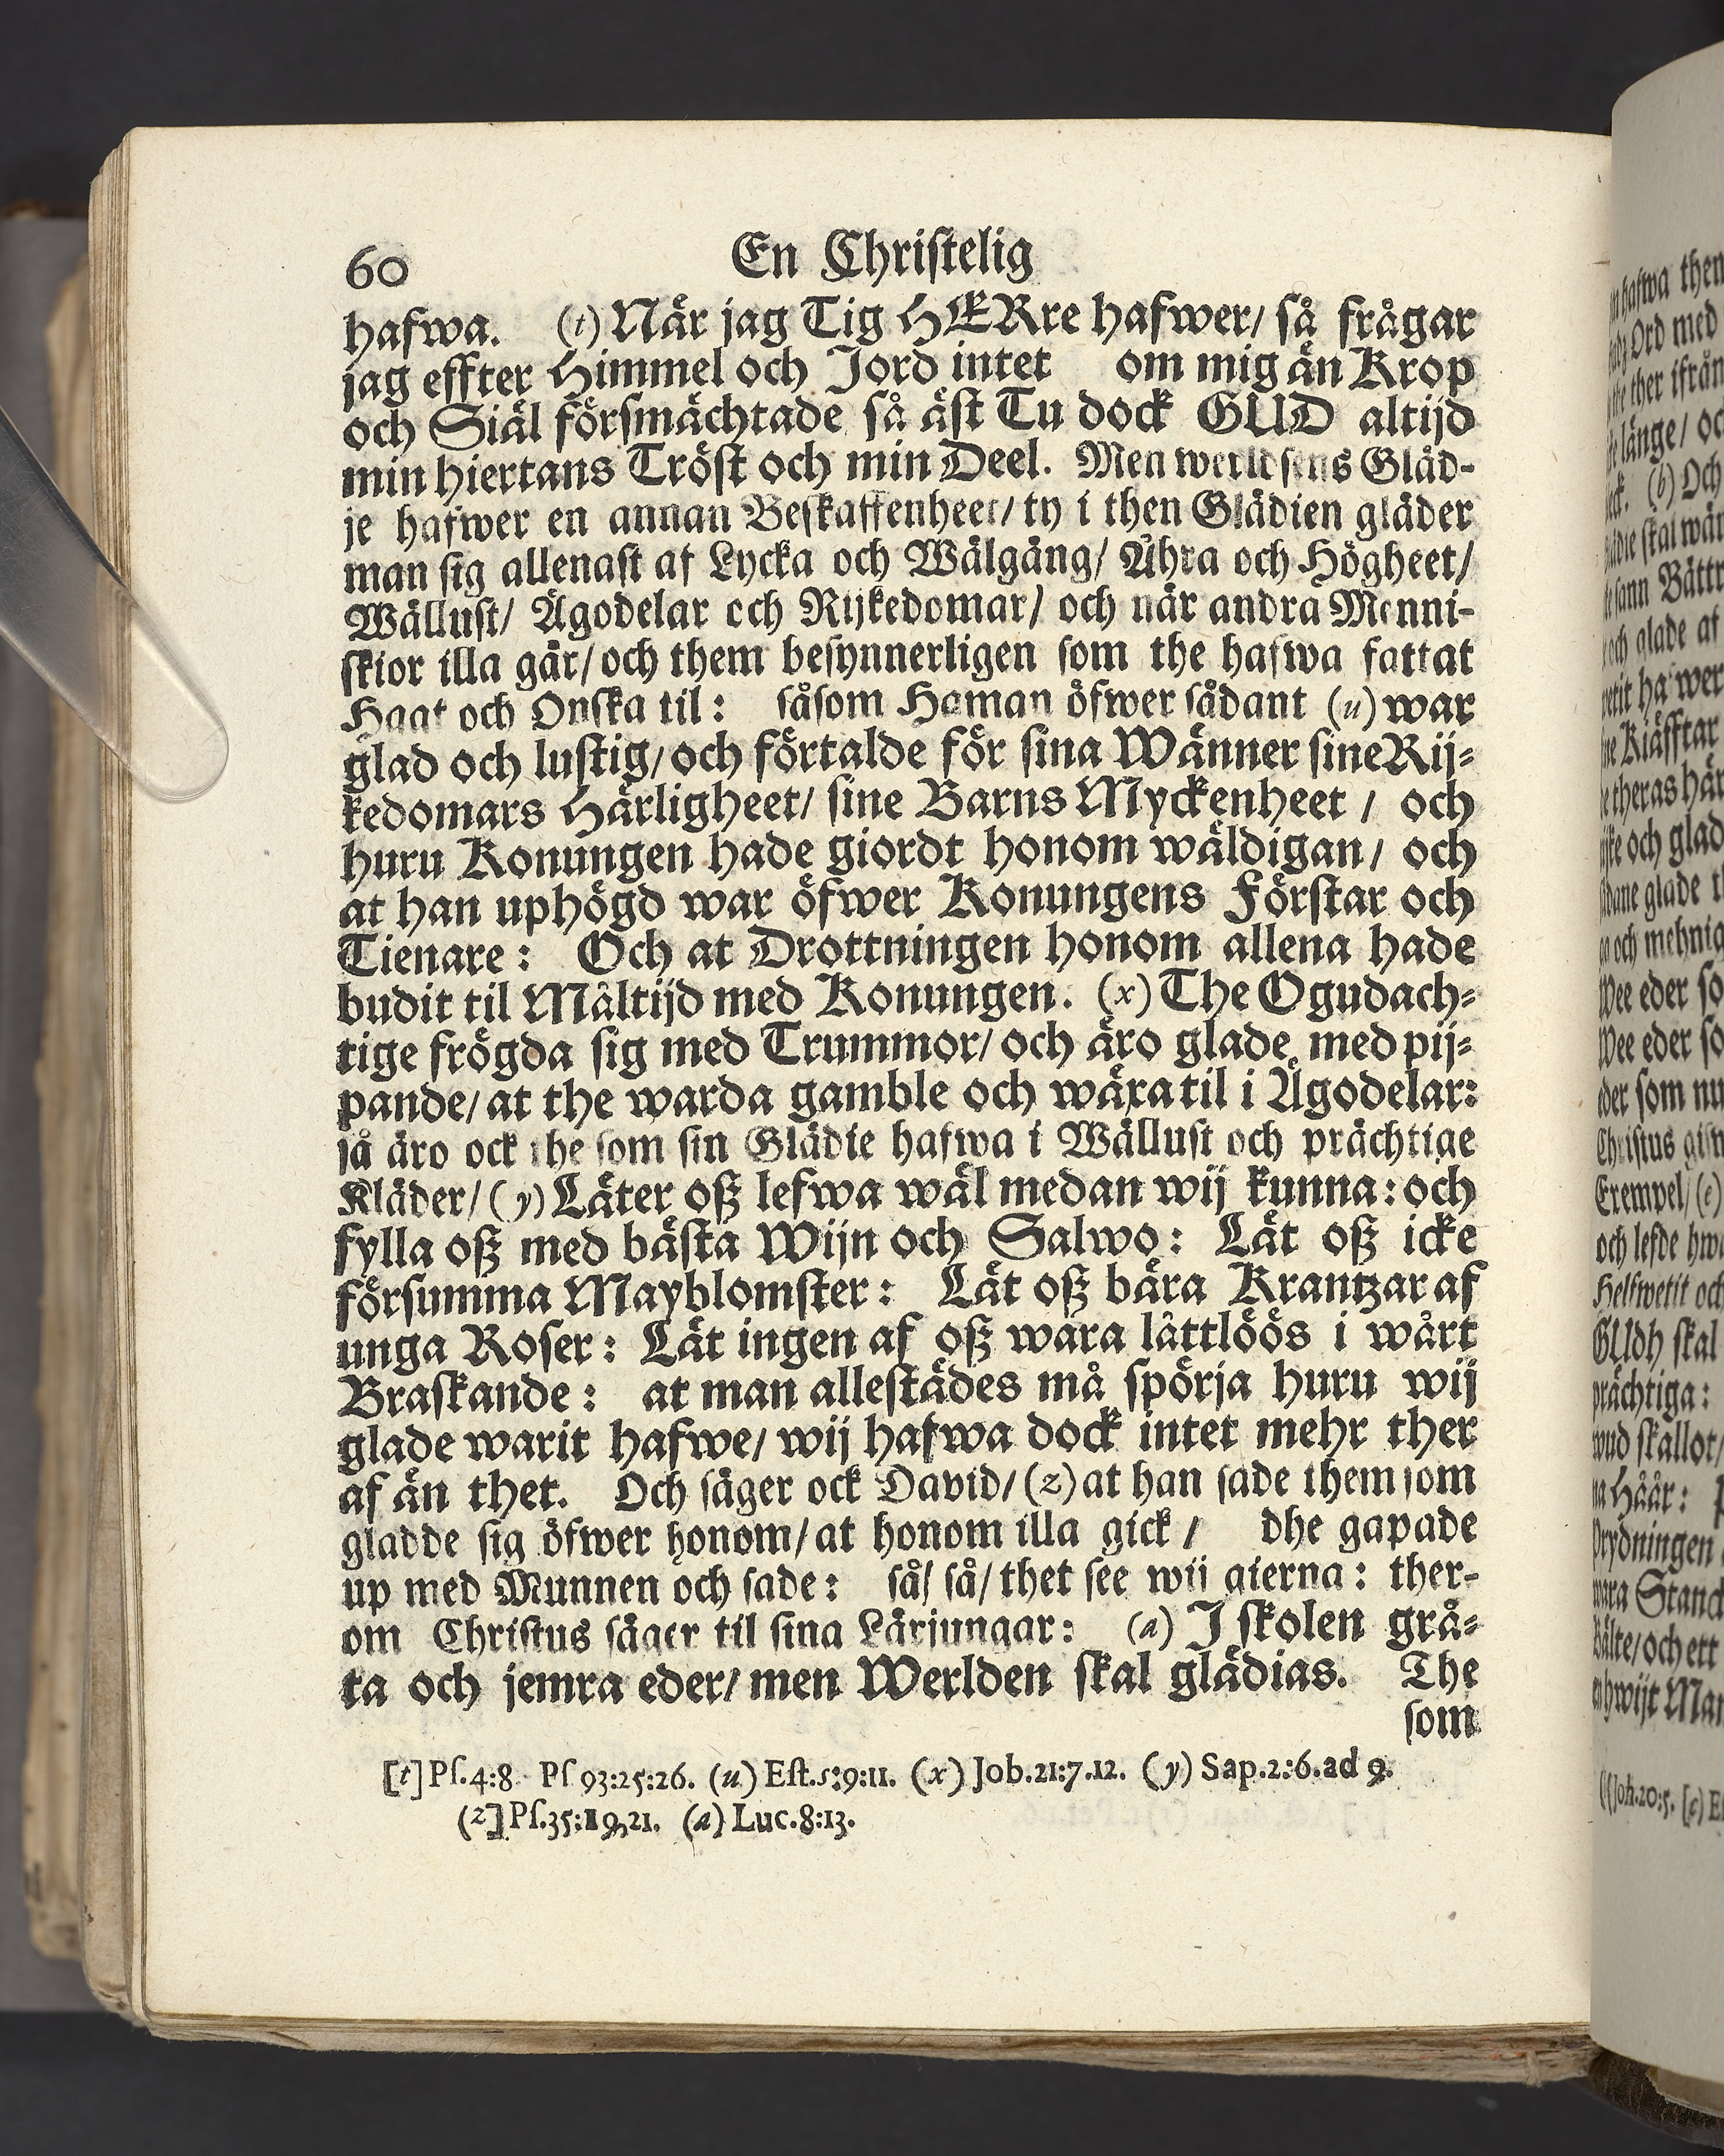 60 En Christelig
hafwa. (t) När jag Tig HERre hafwer/ så frågar
jag effter Himmel och Jord intet om mig än Krop
och Siäl försmächtade så äst Tu dock GUD altijd
min hiertans Tröst och min Deel. Men werldsens Gläd-
je hafwer en annan Beskaffenheet/ ty i then Glädien gläder
man sig allenast af Lycka och Wälgång/ Ähra och Högheet/
Wällust/ Ägodelar och Rijkedomar/ och när andra Menni-
skior illa går/ och them besynnerligen som the hafwa fattat
Haat och Onska til: såsom Haman öfwer sådant (u) war
glad och lustig/ och förtalde för sina Wänner sine Rij-
kedomars Härligheet/ sine Barns Myckenheet / och
huru Konungen hade giordt honom wäldigan/ och
at han uphögd war öfwer Konungens Förstar och
Tienare: Och at Drottningen honom allena hade
budit til Måltijd med Konungen. (x) The Ogudach-
tige frögda sig med Trummor/ och äro glade med pij-
pande/ at the warda gamble och wäxa til i Ägodelar:
så äro ock the som sin Glädie hafwa i Wällust och prächtige
Kläder/ (y) Låter oß lefwa wäl medan wij kunna: och
fylla oß med bästa Wijn och Salwo: Låt oß icke
försumma Mayblomster: Låt oß bära Krantzar af
unga Roser: Låt ingen af oß wara låttlöös i wårt
Braskande: at man allestädes må spörja huru wij
glade warit hafwe/ wij hafwa dock intet mehr ther
af än thet. Och säger ock David/ (z) at han sade them som
gladde sig öfwer honom/ at honom illa gick / dhe gapade
up med Munnen och sade: så/ så/ thet see wij gierna: ther-
om Christus säger til sina Lärjungar: (a) J skolen grå-
ta och jemra eder/ men Werlden skal glädias. The
som
[t] Ps.4:8 Ps 93:25:26. (u) Est.5:9:11. (x) Job.21:7.12. (y) Sap.2:6.ad 9.
(z] Ps.35:19,21. (a) Luc.8:13.